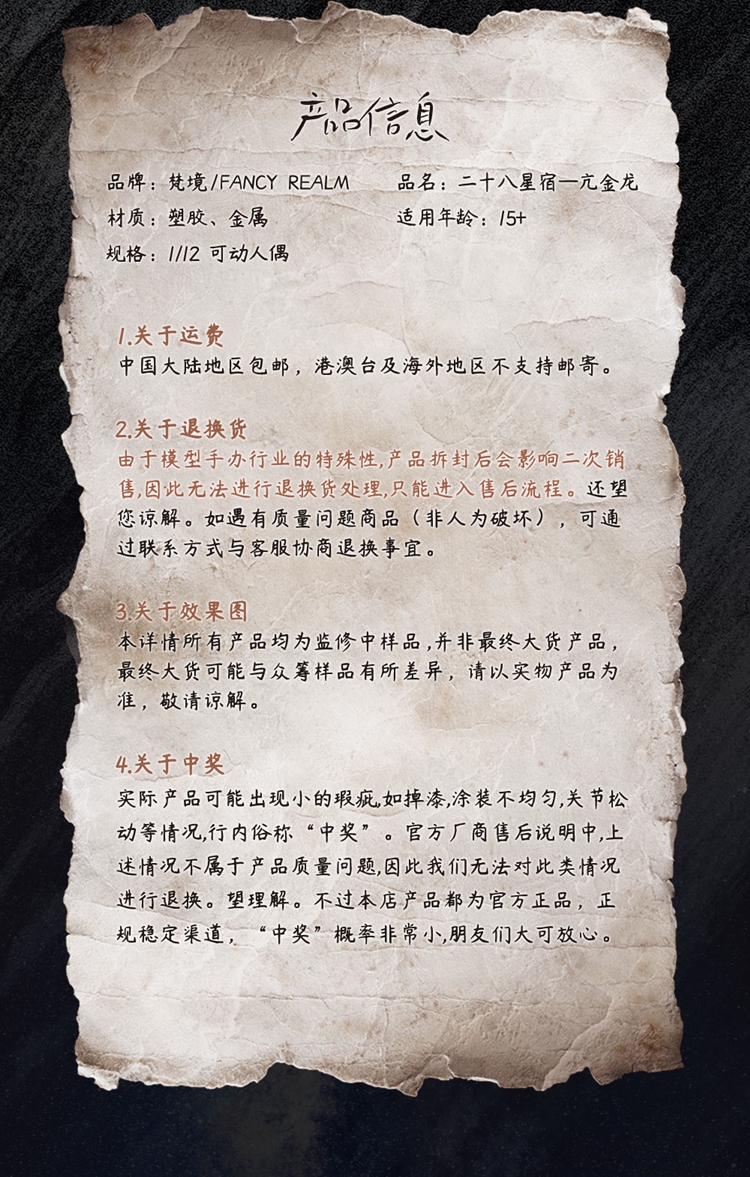 产品信息
品牌：梵境/FANCY REALM 品名：二十八星宿—亢金龙
材质：塑胶、金属 适用年龄：15+
规格：1/12 可动人偶
1.关于运费
中国大陆地区包邮，港澳台及海外地区不支持邮寄。
2.关于退换货
由于模型手办行业的特殊性,产品拆封后会影响二次销
售,因此无法进行退换货处理,只能进入售后流程。还望
您谅解。如遇有质量问题商品（非人为破坏），可通
过联系方式与客服协商退换事宜。
3.关于效果图
本详情所有产品均为监修中样品,并非最终大货产品，
最终大货可能与众筹样品有所差异，请以实物产品为
准，敬请谅解。
4.关于中奖
实际产品可能出现小的瑕疵,如掉漆,涂装不均匀,关节松
动等情况,行内俗称“中奖”。官方厂商售后说明中,上
述情况不属于产品质量问题,因此我们无法对此类情况
进行退换。望理解。不过本店产品都为官方正品，正
规稳定渠道，“中奖”概率非常小,朋友们大可放心。